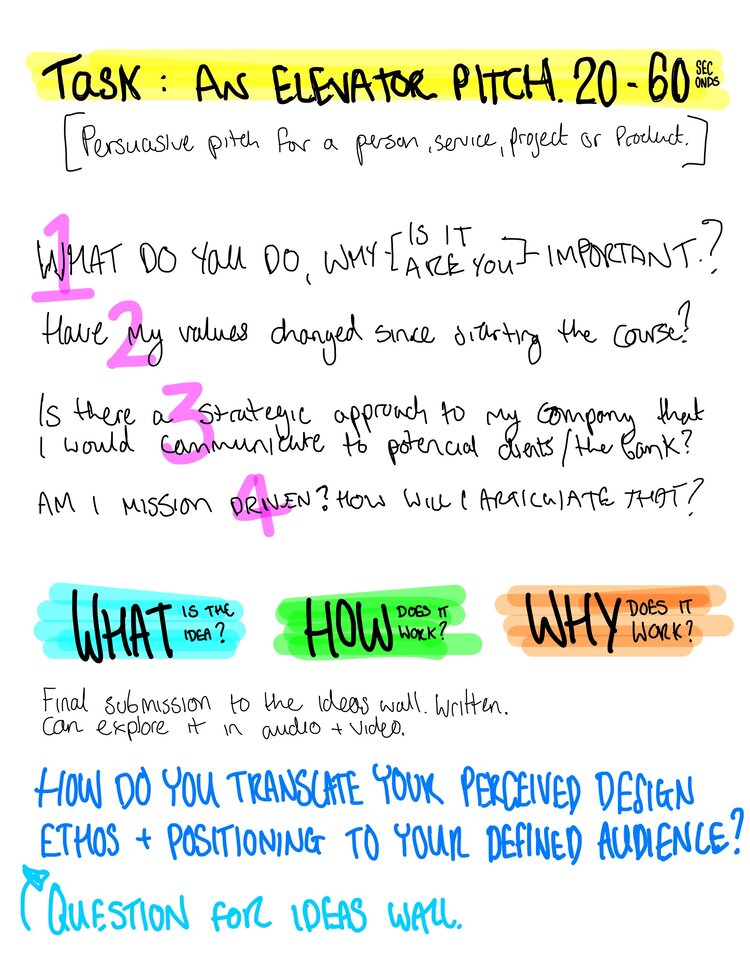 TASK: AN ELEVATOR PITCH. 20-60 SECONDS
[Persuasive pitch for a person, service, project or Product.]
1
WHAT DO YOU DO, WHY [IS IT ARE YOU] IMPORTANT.?
2
Have my values changed since starting the course?
3
Is there a strategic approach to my company that
I would communicate to potencial clients/the bank?
4
AM I MISSION DRIVEN? HOW WILL I ARTICULATE THAT?
WHAT IS THE IDEA?
HOW DOES IT WORK?
WHY DOES IT WORK?
Final submission to the ideas wall. Written.
Can explore it in audio + video.
HOW DO YOU TRANSLATE YOUR PERCEIVED DESIGN
ETHOS + POSITIONING TO YOUR DEFINED AUDIENCE?
QUESTION FOR IDEAS WALL.